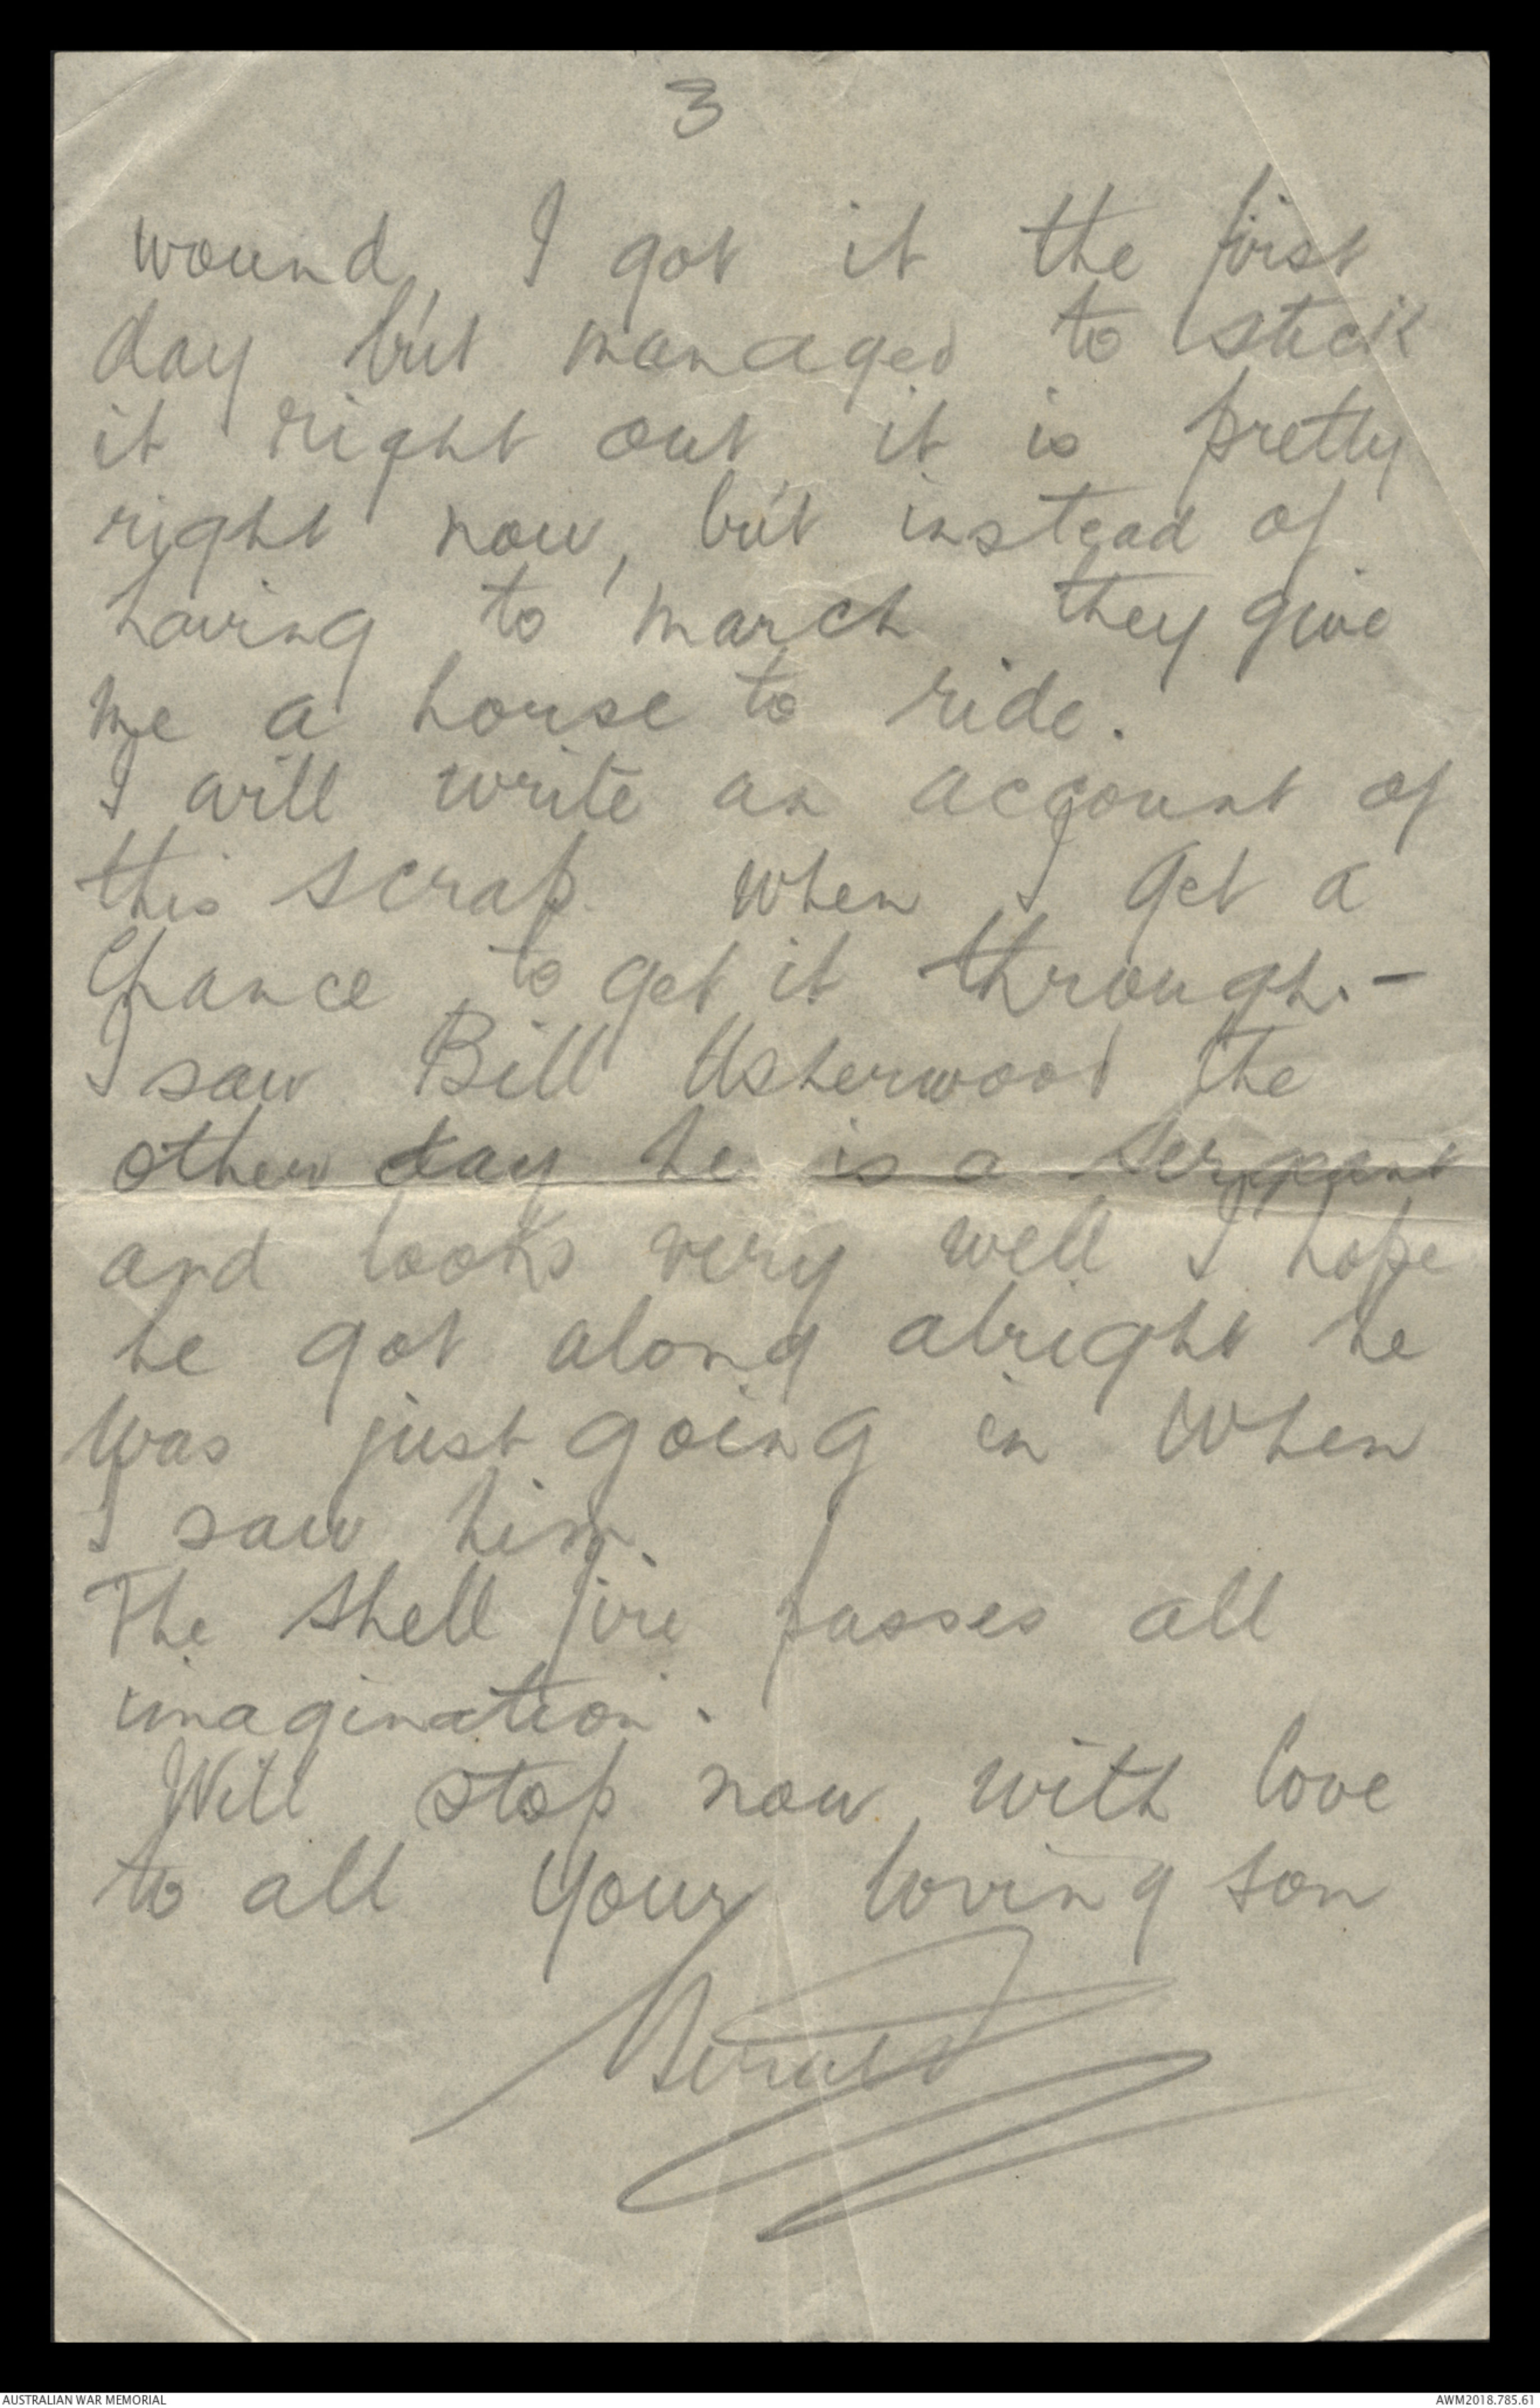 3
wound, I got it the first
day but managed to stick
it right out it is pretty
right now, but instead of
having to march they give
me a horse to ride.
I will write an account of
this scrap when I get a
chance to get it through. -
I saw Bill Usherwood the
other day he is a sergeant
and looks very well I hope
he got along alright he
was just going in when
I saw him.
The shell fire passes all
imagination.
Will stop now with love
to all your loving son
AUSTRALIAN WAR MEMORIAL
AWM2018.785.61